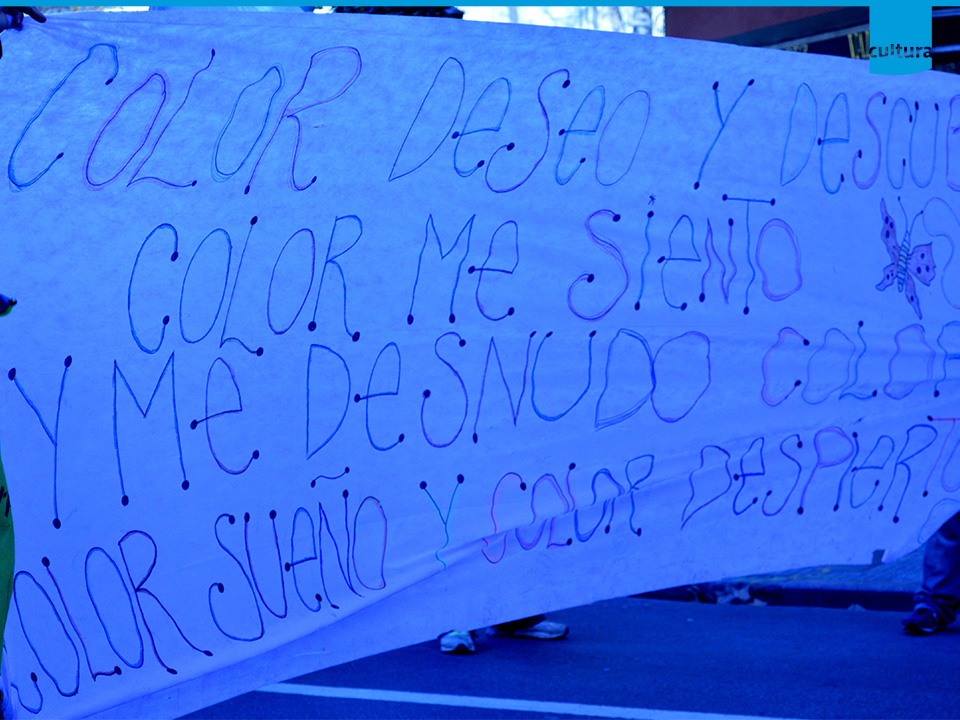 cultura
COLOR DeSeO Y DeSCUE
COLOR Me SieNTO
Y Me DeSNUDO COLOR
COLOR SUeÑO Y COLOR DeSPieRTO